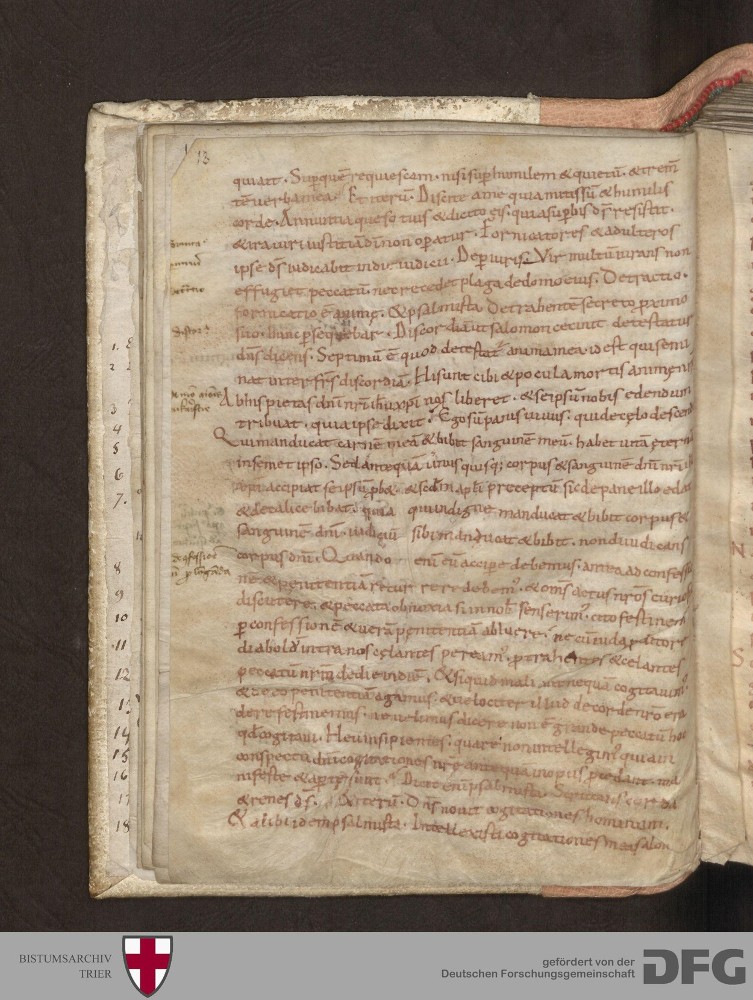 13
qui ait. Sup quē requiescam. nisi sup humilem & quietū. & trem̄
tē verba mea. Et iterū. Discite a me quia mitis sū & humilis
corde. Annuntia queso tuis dilectos q̄a superbis dr̄ resistit.
& ira viri iustitiā dī non operatur. Fornicatores & adulteros
ipse ds̄ iudicabit in die iudicii. De periuris. Vir multū iurans non
effugiet peccatū. nec recedet plaga de domo eius. Detractio.
fornicatio ē animę. & psalmista. Detrahentē secreto proximo
suo. hunc persequebar. Discordiā ut salomon cecinit detestatur
dn̄s dicens. Septimū ē quod detestat̄ anima mea. id est qui semi
nat inter frs̄ discordiā. Hi sunt cibi & pocula mortis animę
Ab his pietas dn̄i nr̄i ihū xp̄i nos liberet. & se ipsū nobis edendum
tribuat. quia ipse dixit. Ego sū panis vivus. qui de cęlo descend
Qui manducat carnē meā & bibit sanguinē meū. habet vitā ętern
in semet ipso. Sed antequā unusquisq; corpus & sanguinē dn̄i nr̄i
accipiat se ipsū p̄b& & sc̄dm ap̄li preceptū sic de pane illo edat
& de calice bibat. quia qui indigne manducat & bibit corpus &
sanguinē dn̄i. iudiciū sibi manducat & bibit. non diiudicans
corpus dn̄i. Quando enī eū accipe debemus. antea ad confessio
nē & penitentiā recurrere debem'. & om̄s actus nr̄os curios
discutere. & peccata obnoxia si in nob̄ senserim'. cito festinem
p confessionē & verā penitentiā abluere. ne cū iuda proditore
diabolū intra nos cęlantes pereamus. protrahentes & celantes
peccatū nr̄m de die in diē. & si quid mali aut nequā cogitavim'
& de eo penitentiā agamus. & velociter illud de corde nr̄o era
dere festinemus. ne velimus dicere non ē grande peccatū hoc
qd̄ cogitavi. Heu insipientes. quare non intellegim' quia in
conspectu dn̄i cogitationes nr̄e antequā in opus prodeant. ma
nifeste & aperte sunt. Dicit enī psalmista. Scrutans corda
& renes ds̄. & iterū. Dn̄s novit cogitationes hominum.
& alibi idem psalmista. Intellexisti cogitationes meas a lon
1.
2
3
4
5
6
7.
8
9
10
11
12
13
14
15
16
17
18
BISTUMSARCHIV
TRIER
gefördert von der
Deutschen Forschungsgemeinschaft
DFG